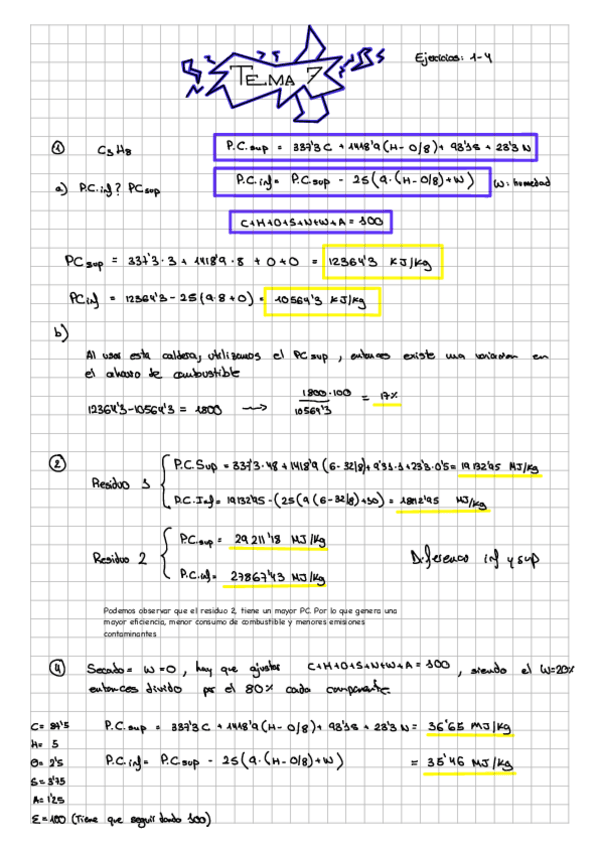 TEMA 7
Ejercicios: 1-4
① C3H8
P.C.sup = 337'3 C + 1418'9 (H - O/8) + 93'1S + 23'3 N
a) P.C.inf? PCsup
P.C.inf = P.C.sup - 25 (9·(H-O/8)+W)
W: humedad
C+H+O+S+N+W+A = 100
PCsup = 337'3·3 + 1418'9·8 + 0+0 = 12364'3 KJ/kg
PCinf = 12364'3 - 25(9·8+0) = 10564'3 KJ/kg
b)
Al usar esta caldera, utilizamos el PCsup, entonces existe una variacion en
el ahorro de combustible
12364'3 - 10564'3 = 1800 → 1800·100 / 10564'3 = 17%
②
Residuo 1
P.C.Sup = 337'3·48 + 1418'9 (6-32/8) + 93'1·1 + 23'3·0'5 = 19132'95 MJ/kg
P.C.Inf = 19132'95 - (25(9(6-32/8)+50) = 18
MJ/kg
Residuo 2
P.C.sup = 29211'18 MJ/kg
P.C.inf = 27867'43 MJ/kg
Diferencia inf y sup
Podemos observar que el residuo 2, tiene un mayor PC. Por lo que genera una
mayor eficiencia, menor consumo de combustible y menores emisiones
contaminantes
④ Secado = W=0, hay que ajustar C+H+O+S+N+W+A = 100, siendo el W=20%
entonces divido por el 80% cada componente
C = 87'5
H = 5
O = 2'5
S = 3'75
A = 1'25
Σ = 100 (Tiene que seguir dando 100)
P.C.sup = 337'3 C + 1418'9 (H - O/8) + 93'1S + 23'3 N = 36'65 MJ/kg
P.C.inf = P.C.sup - 25 (9·(H-O/8)+W) = 35'46 MJ/kg